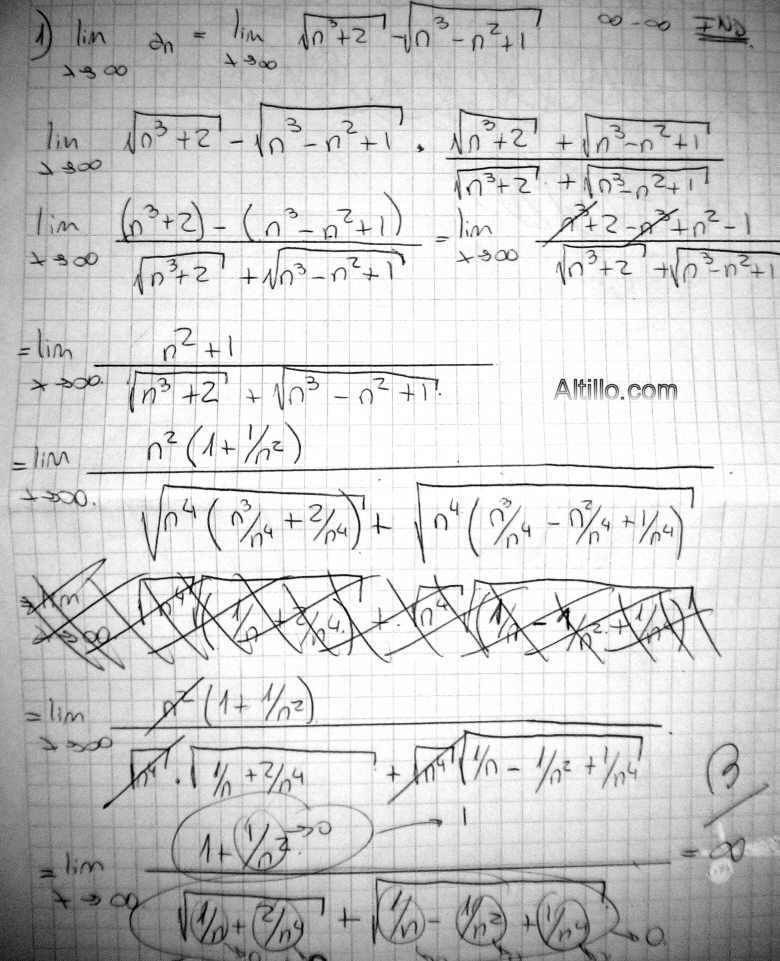 1) lim x→∞ an = lim x→∞ √(n³+2) - √(n³-n²+1) ∞-∞ IND.
lim x→∞ √(n³+2) - √(n³-n²+1) . (√(n³+2) + √(n³-n²+1)) / (√(n³+2) + √(n³-n²+1))
lim x→∞ ((n³+2) - (n³-n²+1)) / (√(n³+2) + √(n³-n²+1)) = lim x→∞ (n³+2-n³+n²-1) / (√(n³+2) + √(n³-n²+1))
= lim x→∞ (n²+1) / (√(n³+2) + √(n³-n²+1))
Altillo.com
= lim x→∞ n²(1+1/n²) / (√(n⁴(n³/n⁴+2/n⁴)) + √(n⁴(n³/n⁴-n²/n⁴+1/n⁴)))
= lim x→∞ √n⁴ √(1/n+2/n⁴) + √n⁴ √(1/n-1/n²+1/n⁴)
= lim x→∞ n²(1+1/n²) / (√n⁴ . √(1/n+2/n⁴) + √n⁴ √(1/n-1/n²+1/n⁴))
= lim x→∞ (1+1/n²) / (√(1/n+2/n⁴) + √(1/n-1/n²+1/n⁴)) = ∞
→0 → 1
→0